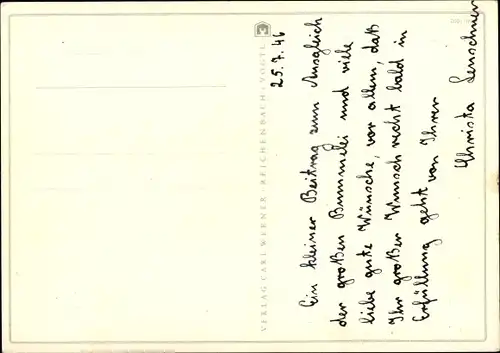 25.7.46
Ein kleiner Beitrag zum Ausgleich
der großen Bummelei und viele
liebe gute Wünsche, vor allem, daß
Ihr großer Wunsch recht bald in
Erfüllung geht von Ihrer
Christa
VERLAG CARL WERNER · REICHENBACH · VOGTL.